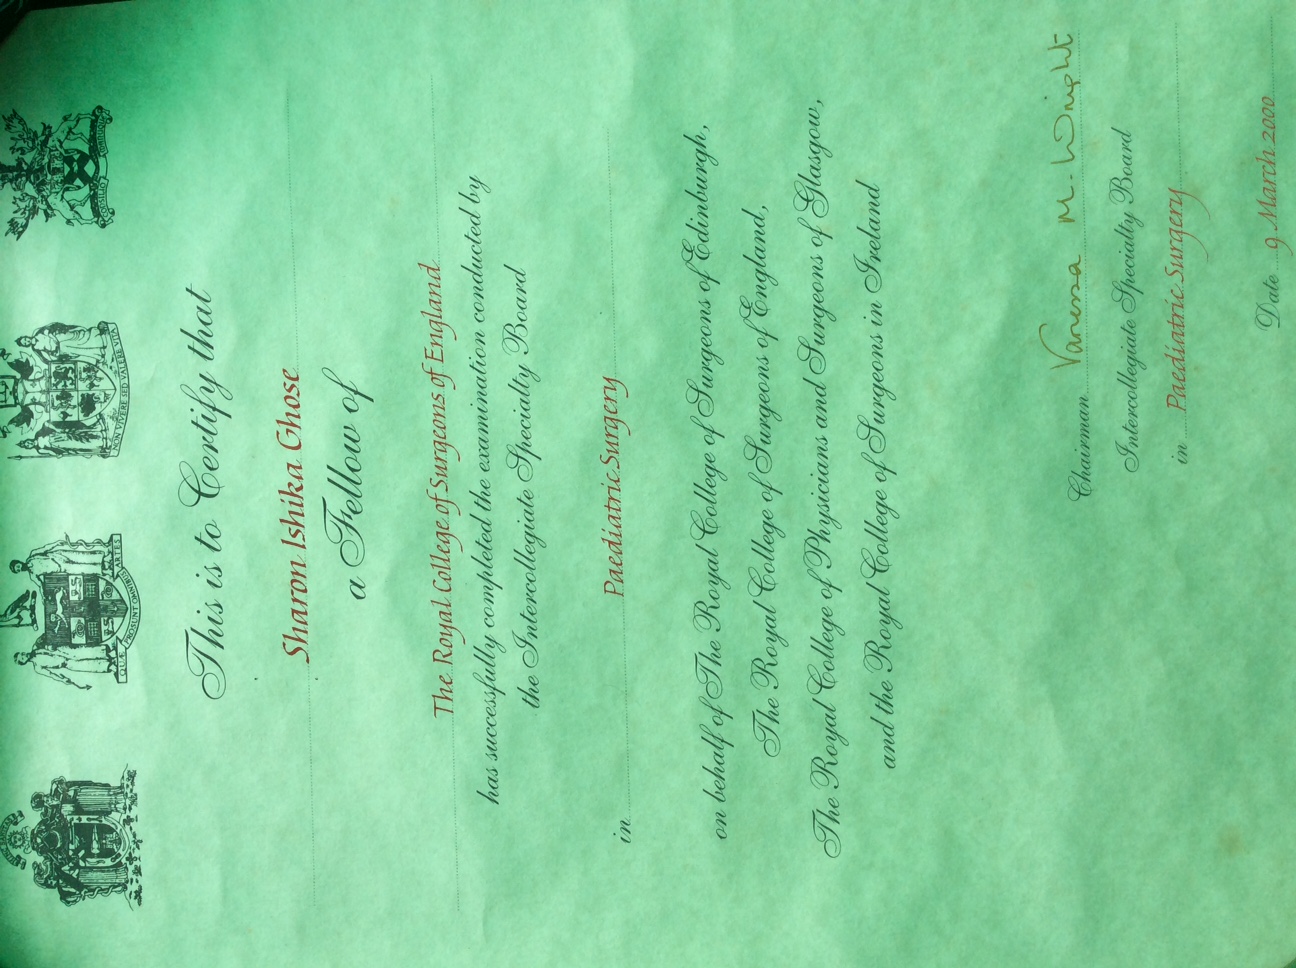 CONSILIO
NON VIVERE SED VALERE VITA
QUÆ PROSUNT OMNIBUS ARTES
This is to Certify that
Sharon Ishika Ghose
a Fellow of
The Royal College of Surgeons of England
has successfully completed the examination conducted by
the Intercollegiate Specialty Board
in Paediatric Surgery
on behalf of The Royal College of Surgeons of Edinburgh,
The Royal College of Surgeons of England,
The Royal College of Physicians and Surgeons of Glasgow,
and the Royal College of Surgeons in Ireland
Chairman Vanessa M. Wright
Intercollegiate Specialty Board
in Paediatric Surgery
Date 9 March 2000